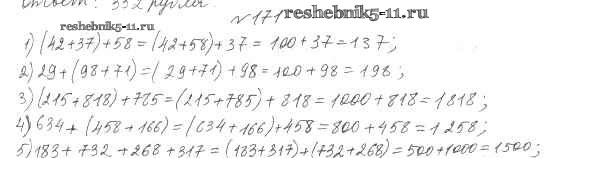 Ответ: 332 рубля.
№171 reshebnik5-11.ru
reshebnik5-11.ru
1) (42+37)+58=(42+58)+37=100+37=137;
2) 29+(98+71)=(29+71)+98=100+98=198;
3) (215+818)+785=(215+785)+818=1000+818=1818;
4) 634+(458+166)=(634+166)+458=800+458=1258;
5) 183+732+268+317=(183+317)+(732+268)=500+1000=1500;